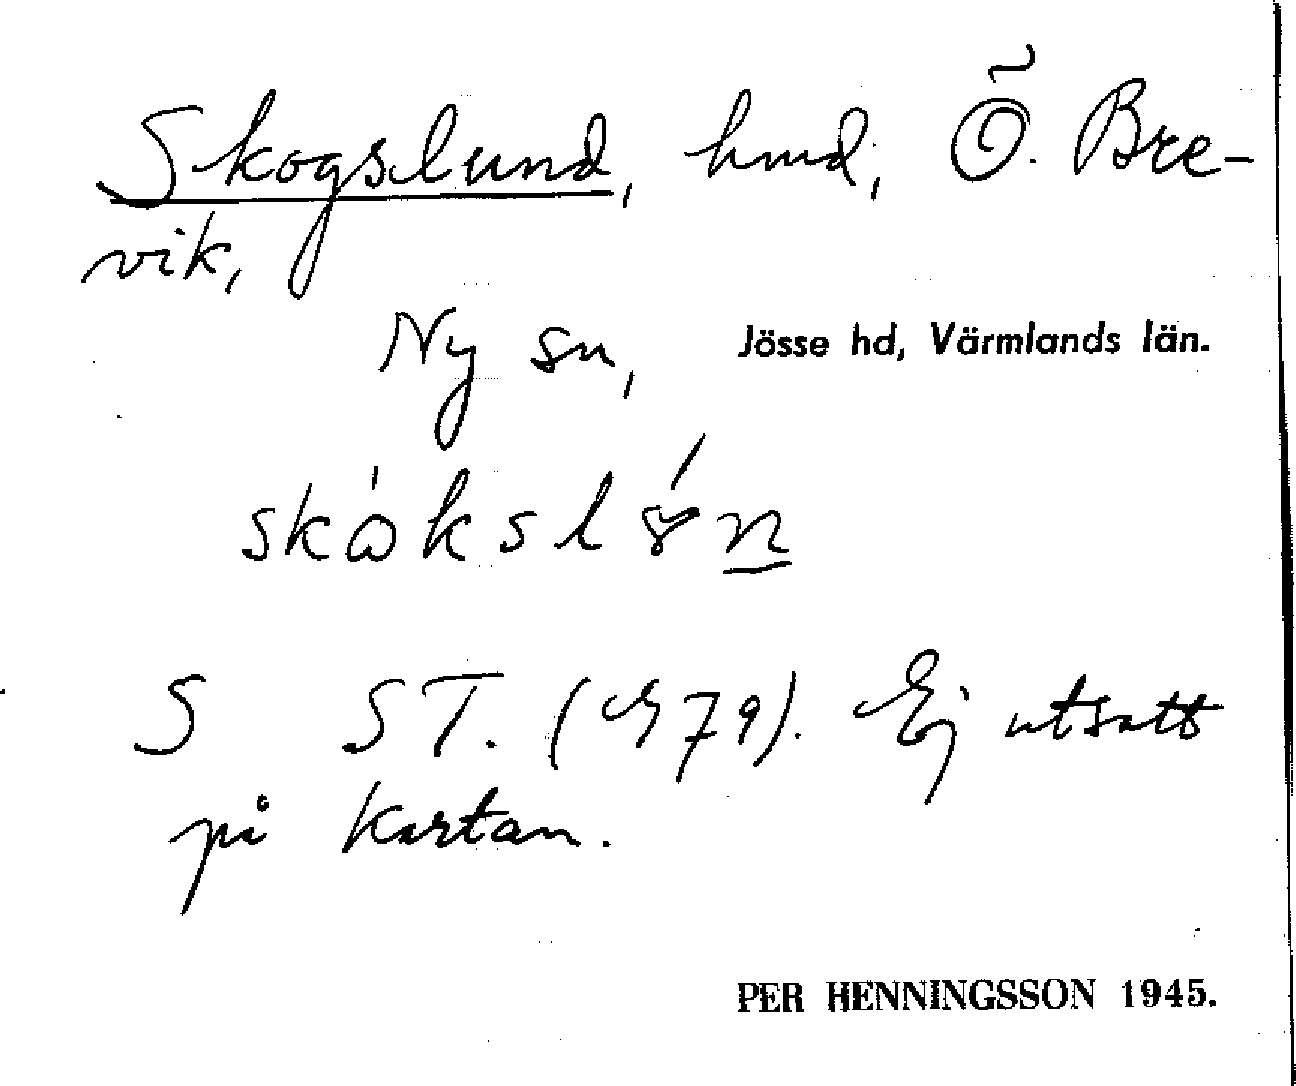 Skogslund, hmd, Ö. Bre-
vik,
Ny sn, Jösse hd, Värmlands län.
S ST. (79). Ej utsatt
på kartan.
PER HENNINGSSON 1945.